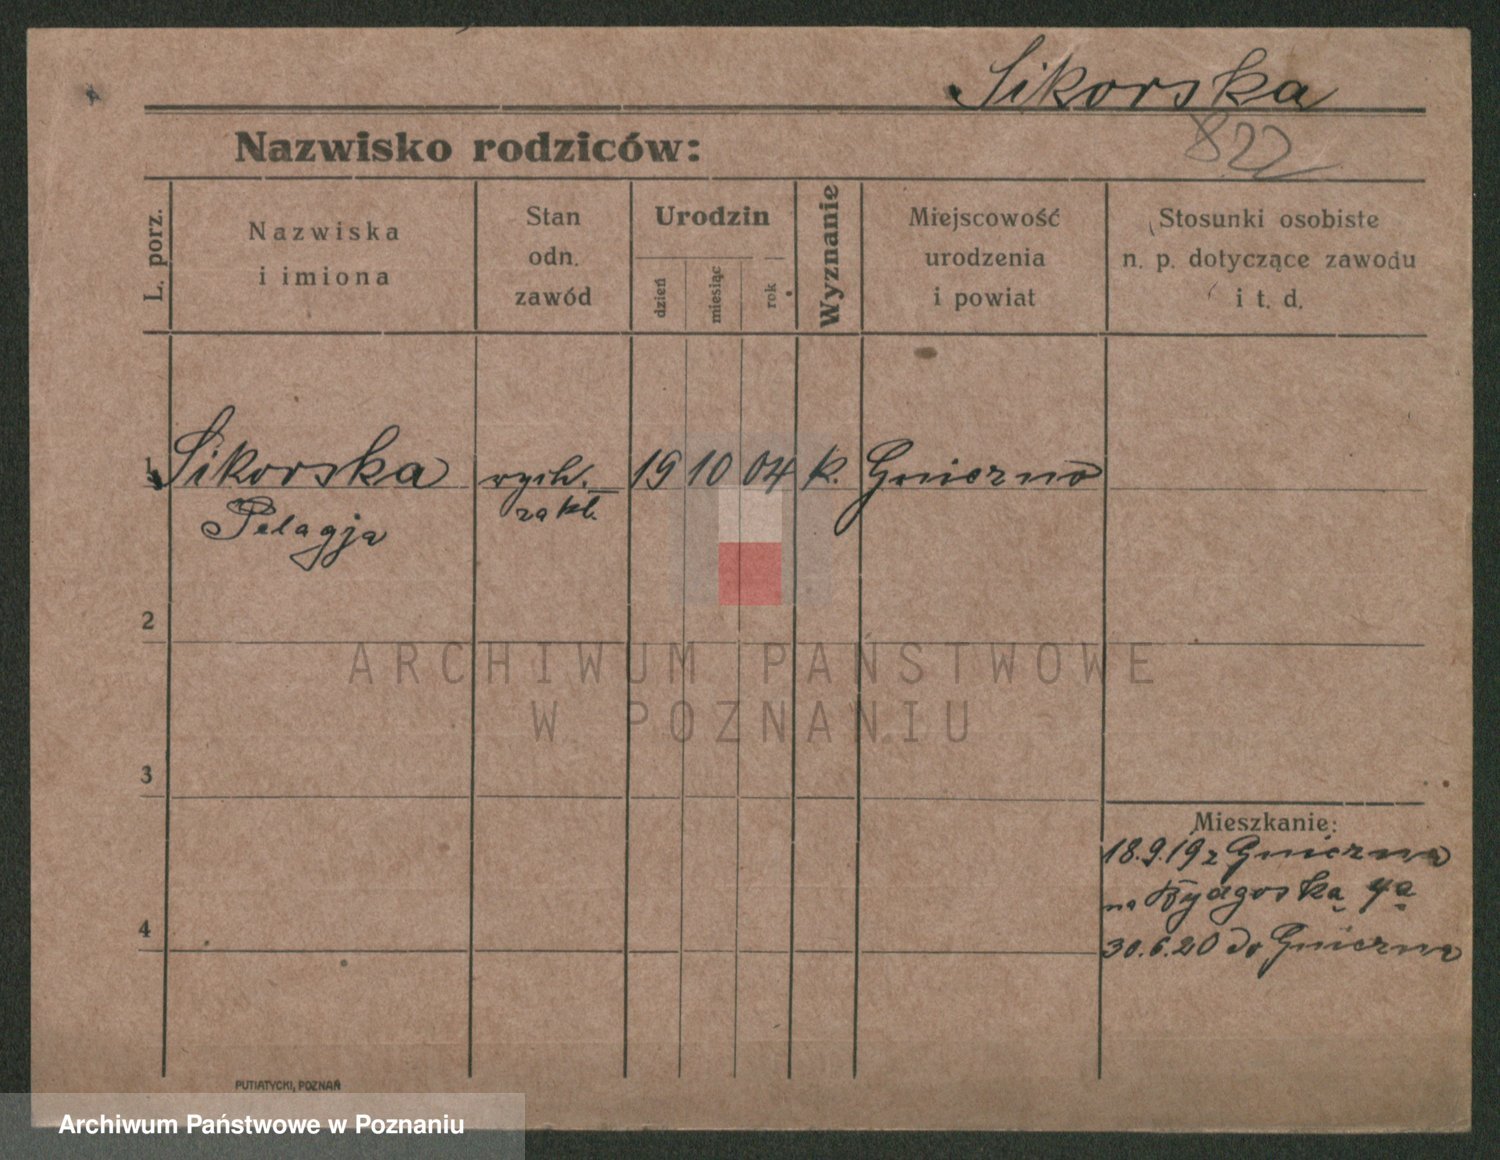 Sikorska
822
Nazwisko rodziców:
L. porz.
Nazwiska
i imiona
Stan
odn.
zawód
Urodzin
dzień
miesiąc
rok
Wyznanie
Miejscowość
urodzenia
i powiat
Stosunki osobiste
n. p. dotyczące zawodu
i t. d.
1 Sikorska 19 10 04 k. Gniezno
Pelagja zakł.
2
ARCHIWUM PAŃSTWOWE
W POZNANIU
3
Mieszkanie:
18.9.19 z Gniezna
na Bydgoską 4a
4
30.6.20 do Gniezna
PUTIATYCKI, POZNAŃ
Archiwum Państwowe w Poznaniu